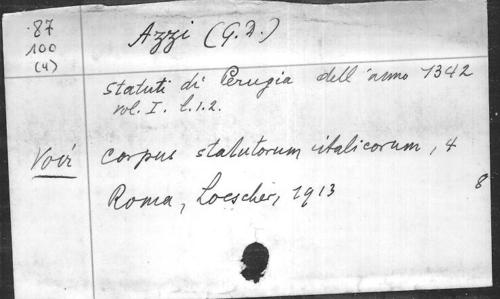 87
100
(4)
Azzi (G.D.)
Statuti di Perugia dell'anno 1342
vol. I. l.1.2.
Voir corpus statutorum italicorum, 4
Roma, Loescher, 1913
8